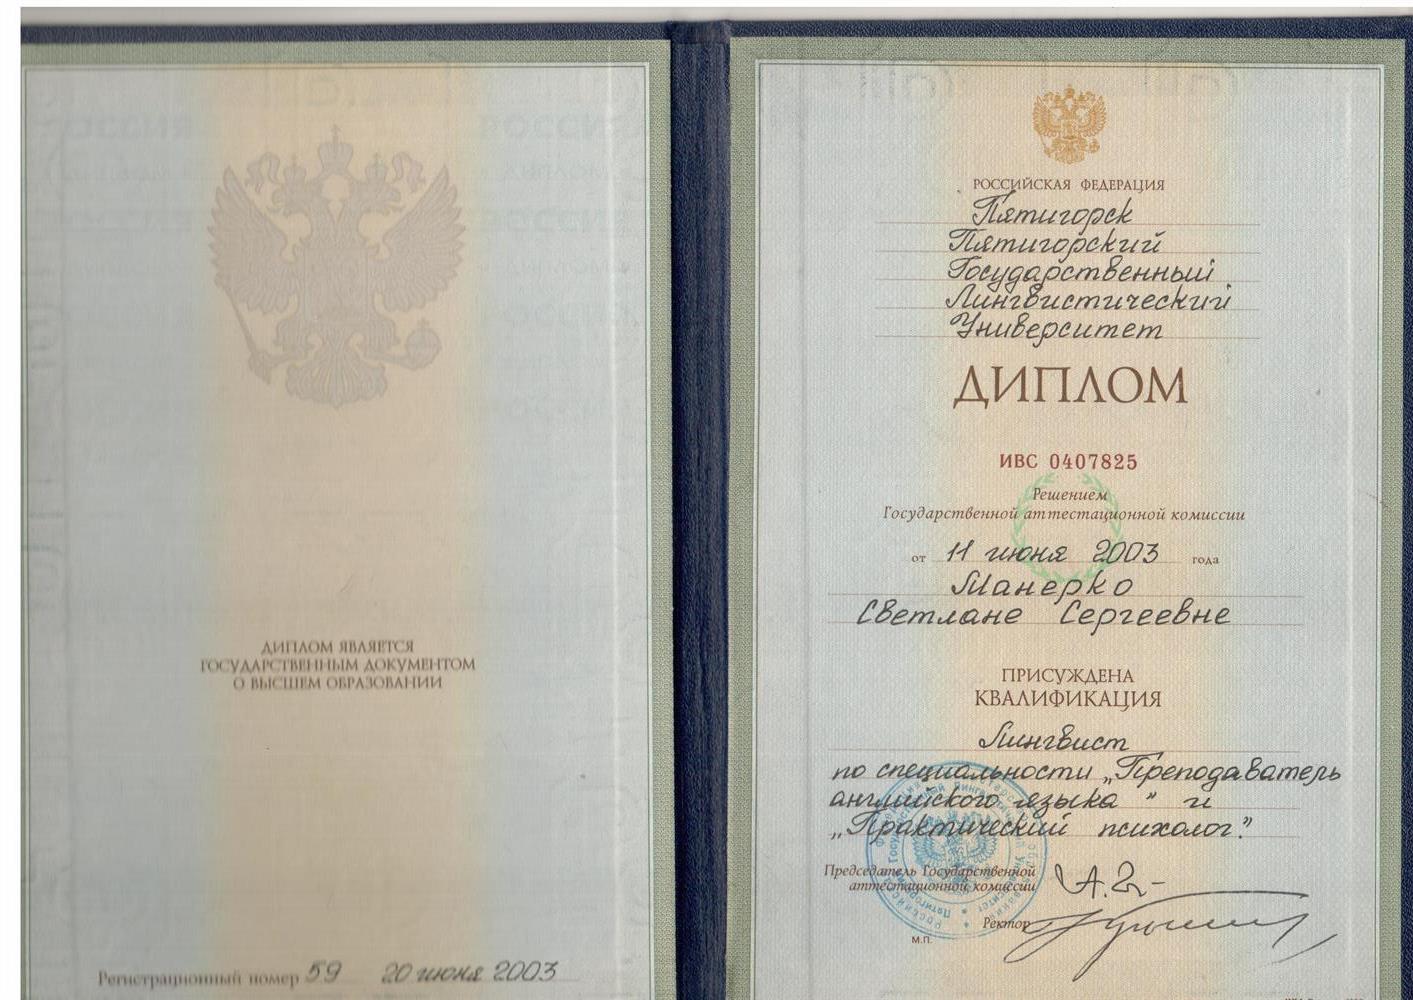 ДИПЛОМ ЯВЛЯЕТСЯ
ГОСУДАРСТВЕННЫМ ДОКУМЕНТОМ
О ВЫСШЕМ ОБРАЗОВАНИИ
Регистрационный номер 59 20 июня 2003
РОССИЙСКАЯ ФЕДЕРАЦИЯ
Пятигорск
Пятигорский
Государственный
Лингвистический
Университет
ДИПЛОМ
ИВС 0407825
Решением
Государственной аттестационной комиссии
от 11 июня 2003 года
Манерко
Светлане Сергеевне
ПРИСУЖДЕНА
КВАЛИФИКАЦИЯ
Лингвист
по специальности „Преподаватель
английского языка" и
„Практический психолог."
Председатель Государственной
аттестационной комиссии
Ректор
М.П.